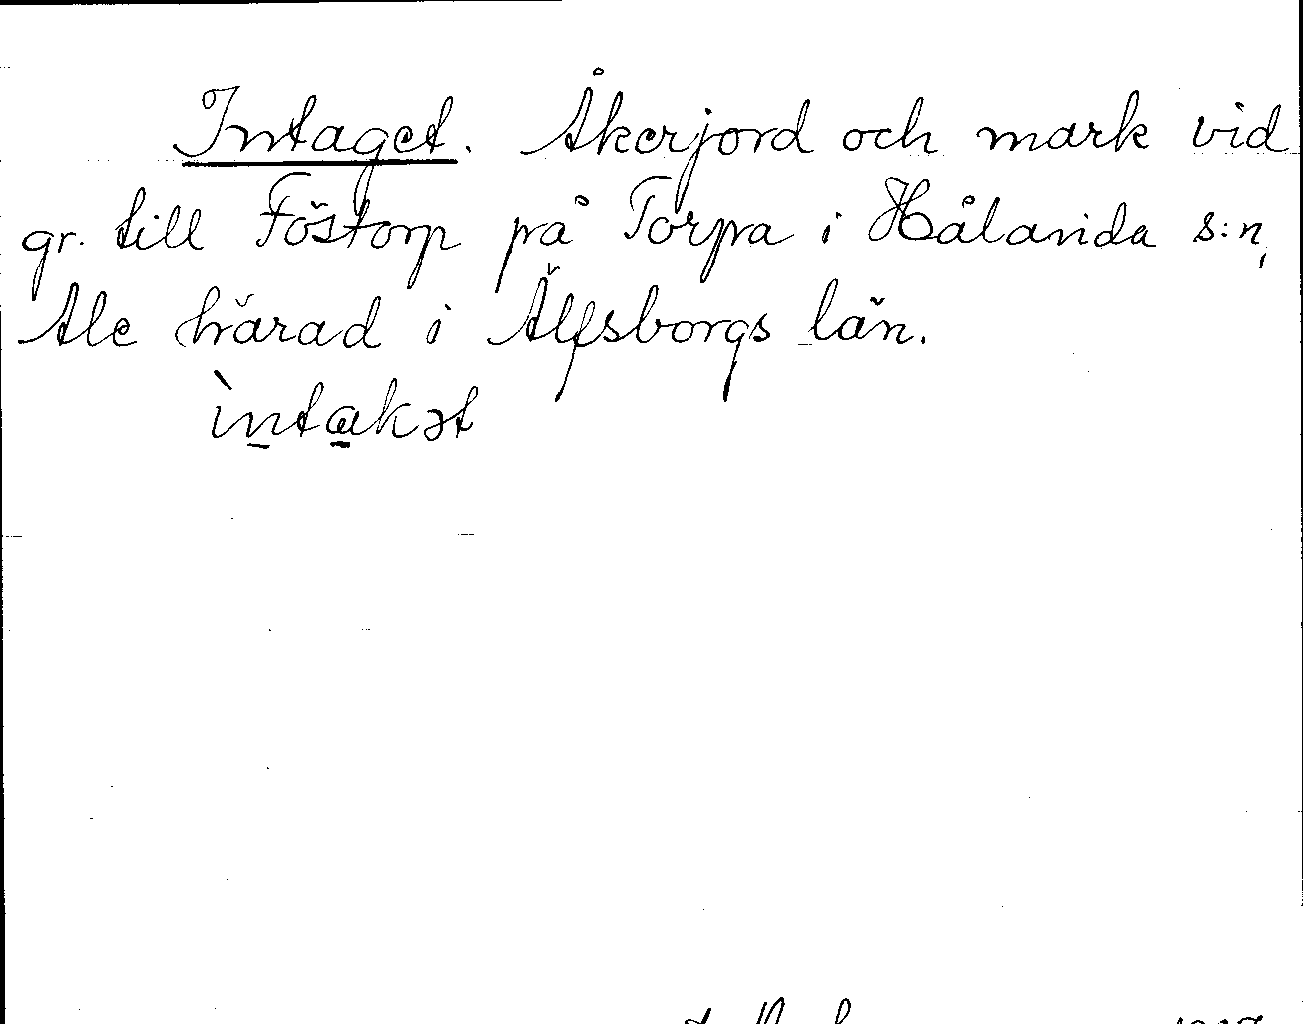 Intaget. Åkerjord och mark vid
gr. till Föstorp på Torpa i Hålanda s:n,
Ale härad i Älfsborgs län.
ìntakət